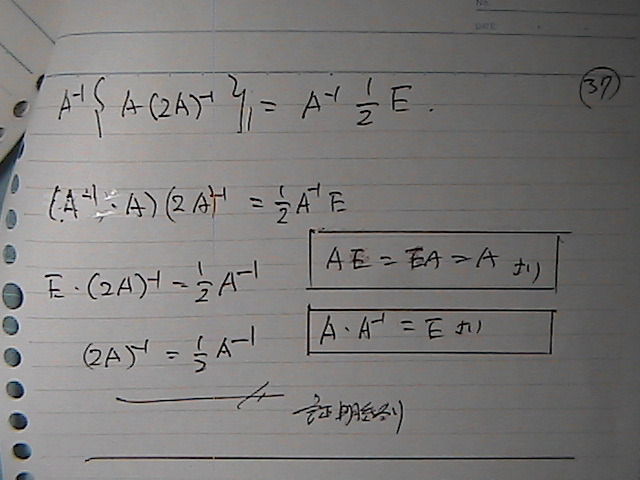 No.
DATE
㊲
A⁻¹{ A(2A)⁻¹ } = A⁻¹ 1/2 E.
(A⁻¹・A)(2A)⁻¹ = 1/2 A⁻¹ E
AE = EA = A より
E・(2A)⁻¹ = 1/2 A⁻¹
A・A⁻¹ = E より
(2A)⁻¹ = 1/2 A⁻¹
証明終り